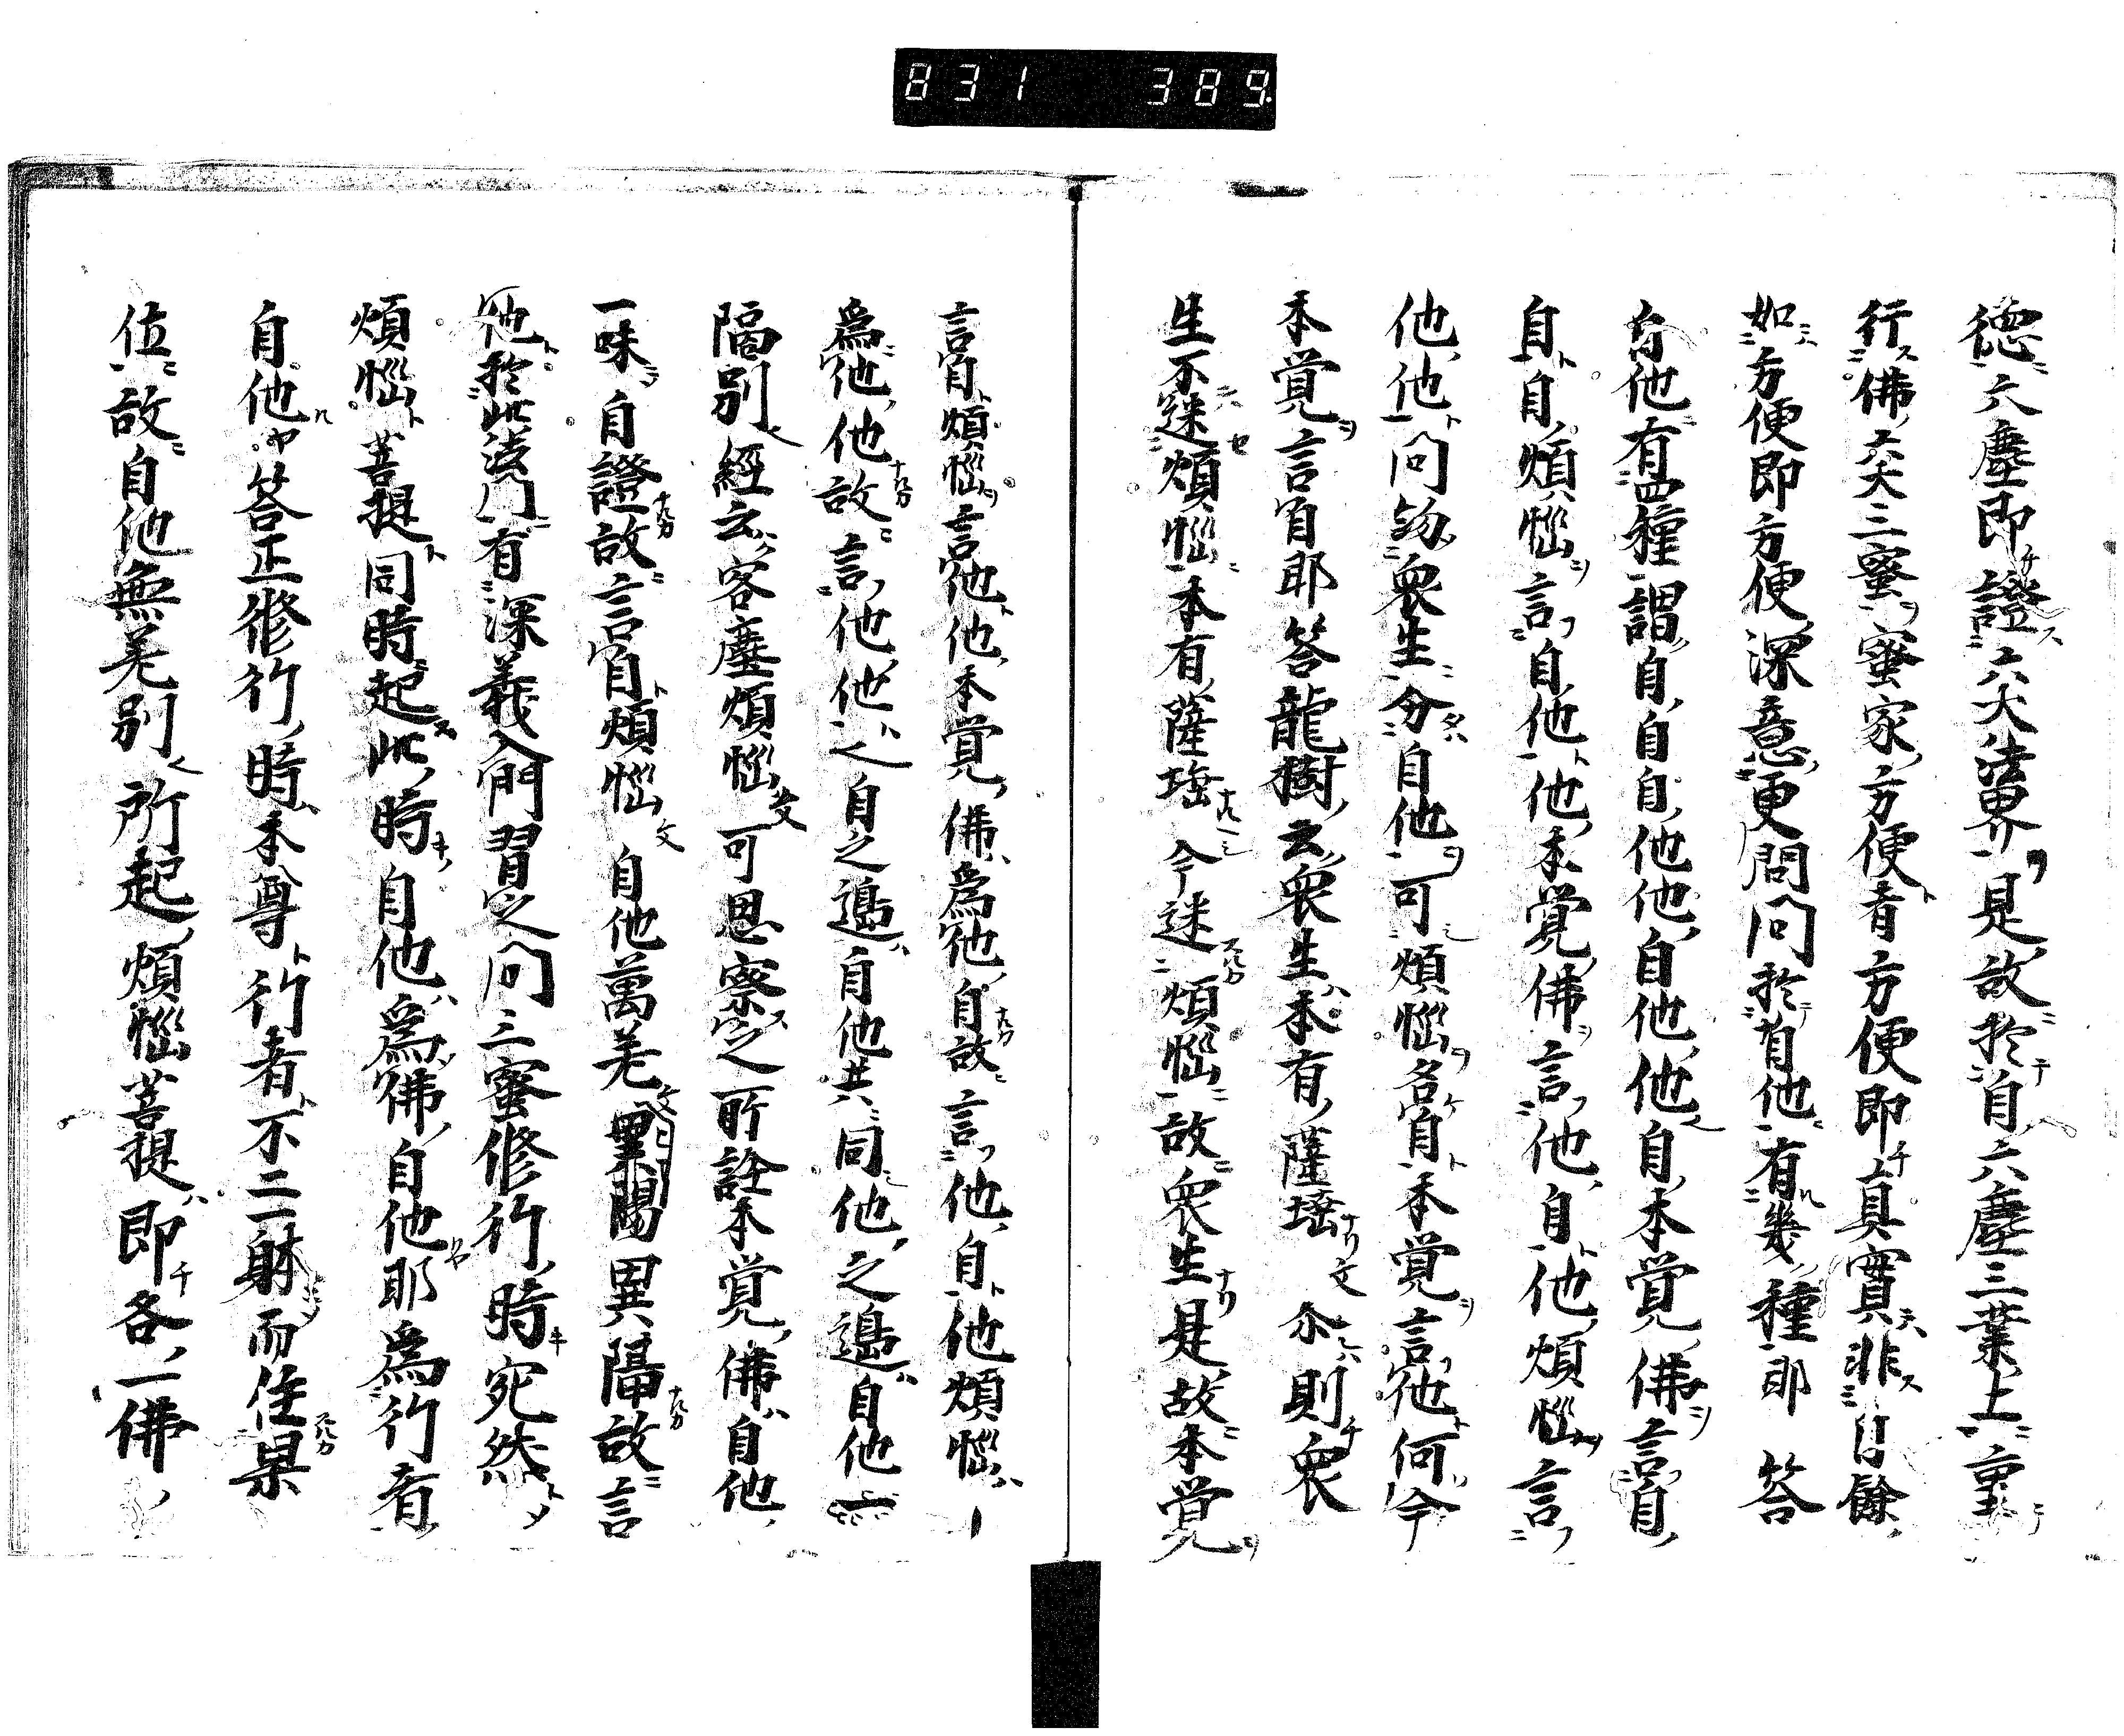 831 389
德六塵即證六大法界是故於自六塵三業上重
行佛六大三蜜蜜家方便者方便即真實非自餘
如方便即方便深意更問問於自他有幾種耶 答
自他有四種謂自自自他他自他他自本覺佛言自
自自煩惱言自他他本覺佛言他自他煩惱言
他他問約衆生分自他可煩惱名自本覺言他何今
本覺言自耶答龍樹云衆生本有薩埵文 尒則衆
生不迷煩惱本有薩埵今迷煩惱故衆生是故本覺
言自煩惱言他他本覺佛爲他自故言他自他煩惱
爲他他故言他他之自之邊自他共同他之邊自他一
隔別經云客塵煩惱文可思察之所詮本覺佛自他
一味自證故言自煩惱文自他萬差異隔故言
他於此法門有深義入門習之問三蜜修行時宛然
煩惱菩提同時起此時自他爲佛自他耶爲行者
自他答正修行時本尊行者不二躰而住果
位故自他無差別所起煩惱菩提即各一佛